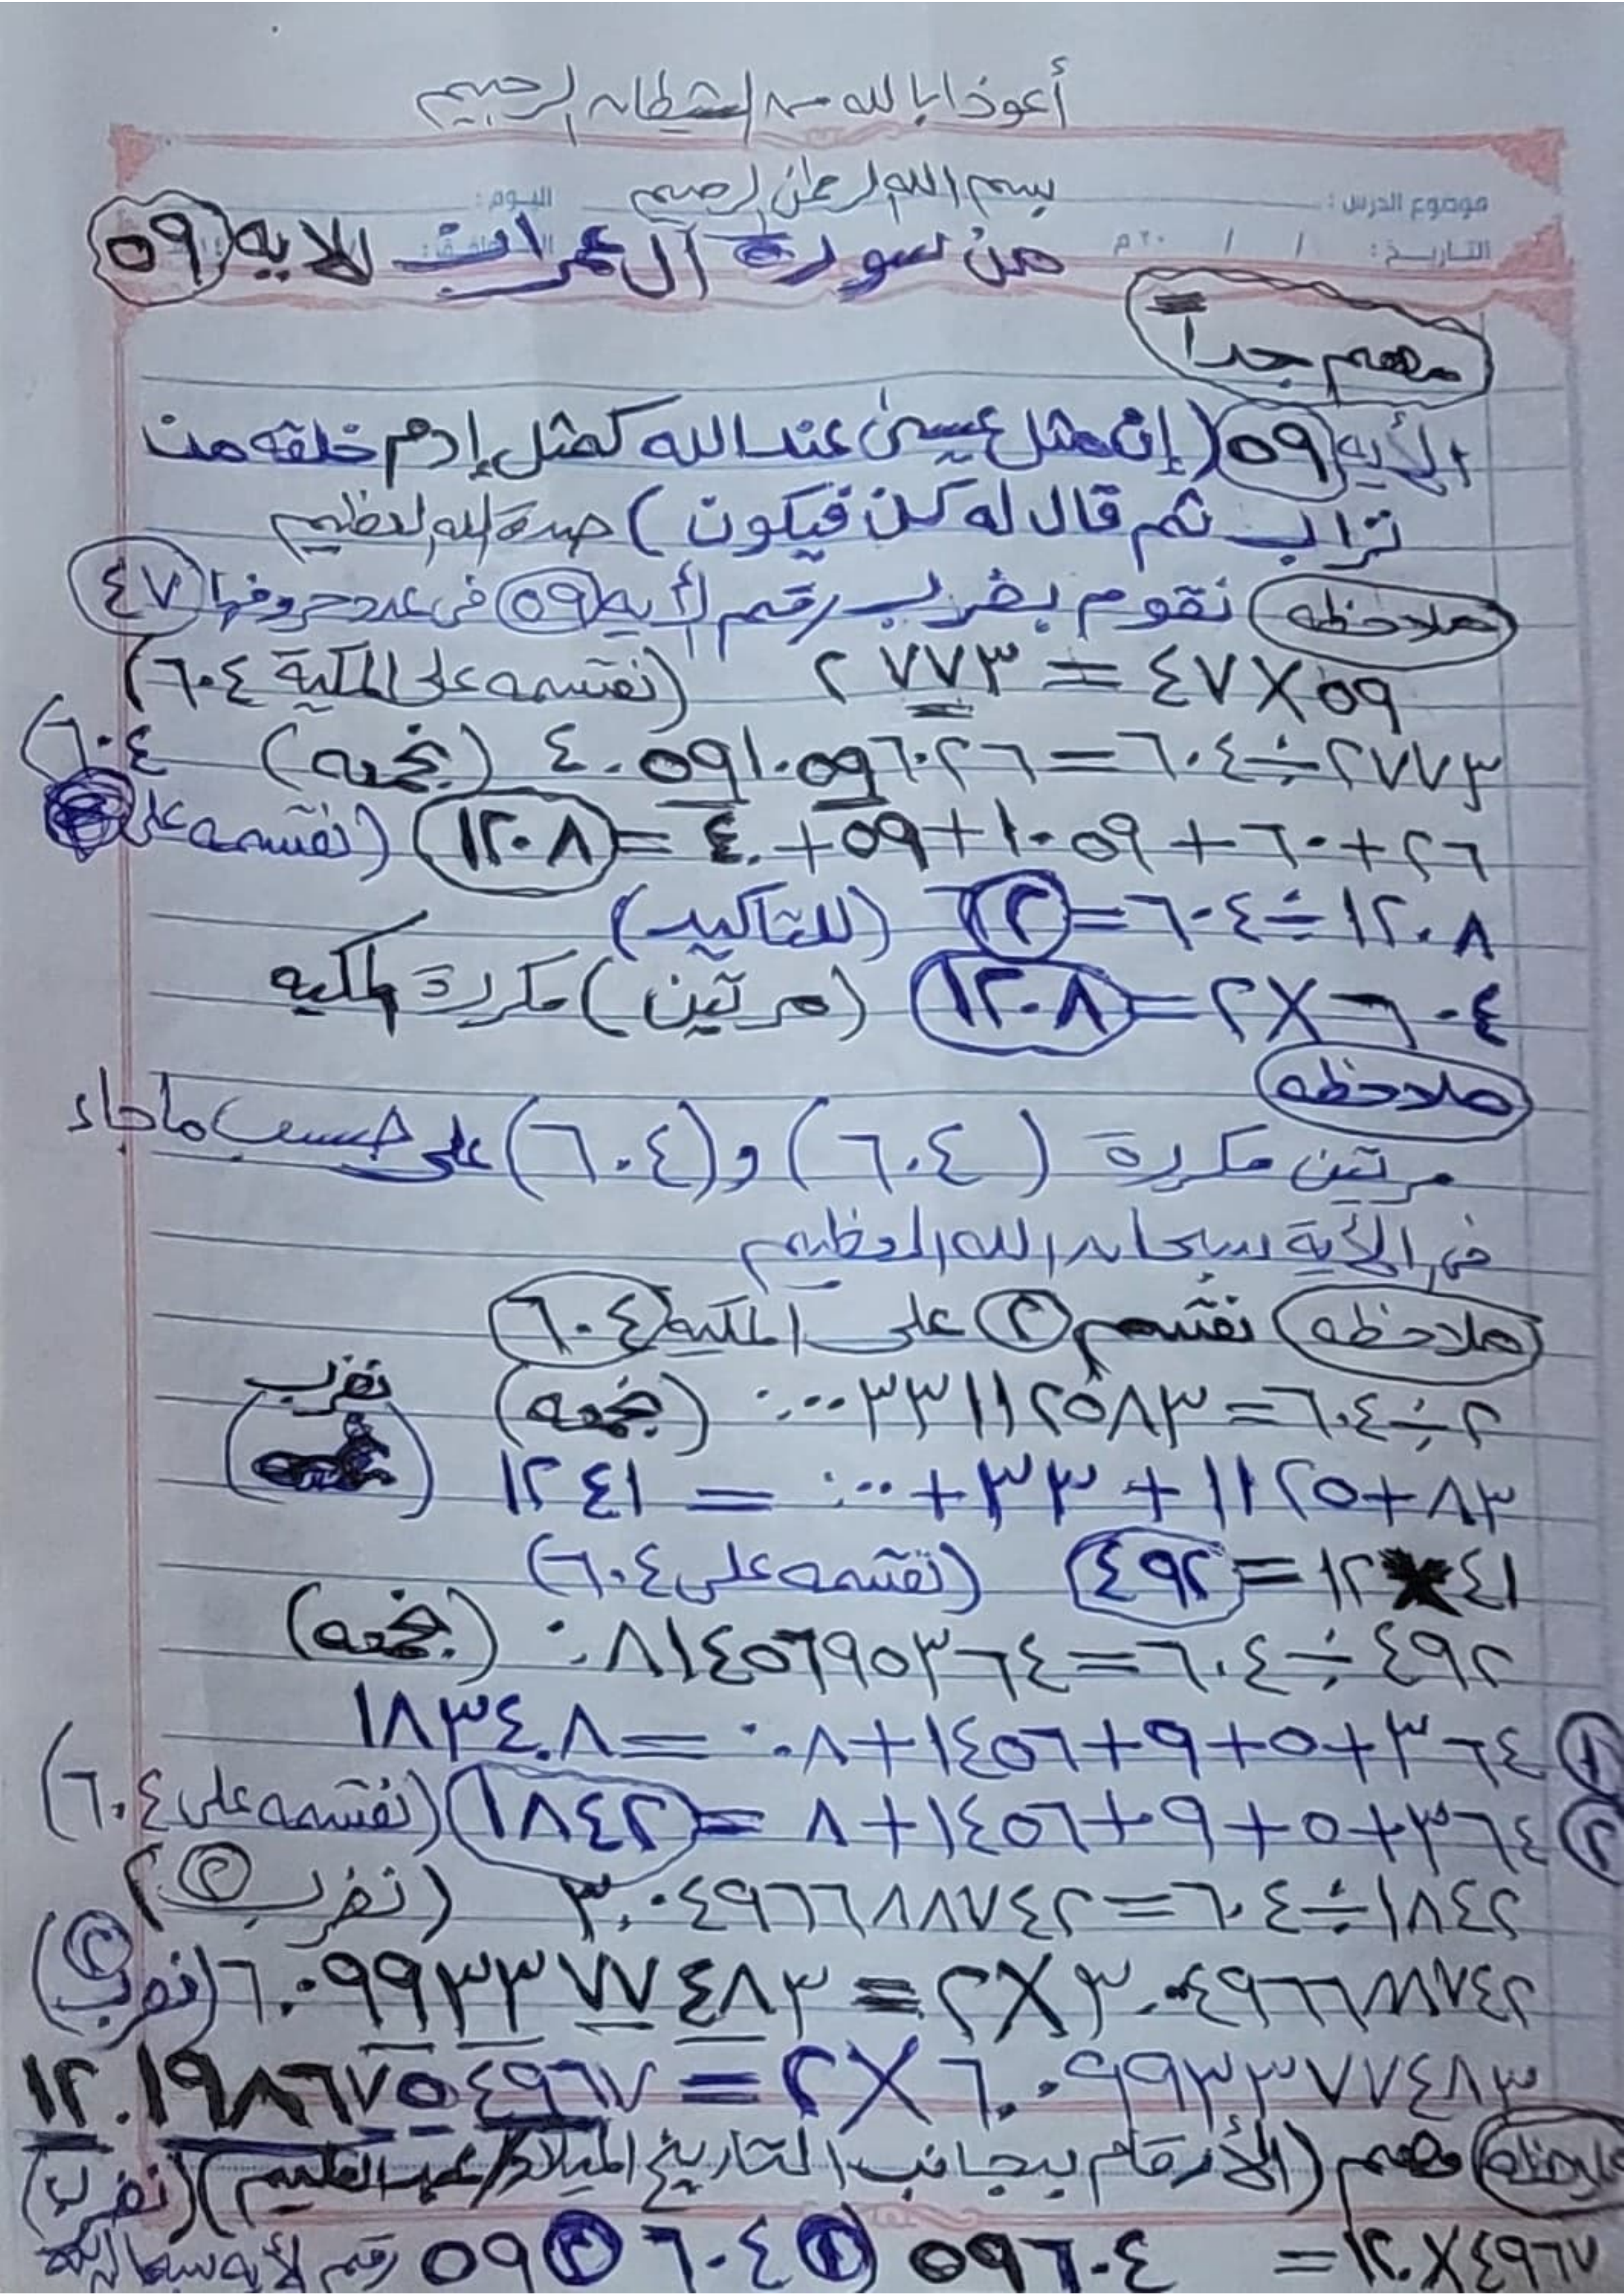 أعوذ بالله من الشيطان الرجيم
بسم الله الرحمن الرحيم
موضوع الدرس : اليوم :
التاريخ : / / ٢٠ م
من سورة آل عمران للايه ٥٩
مهم جداً
الأيه ٥٩ (إن مثل عيسىٰ عند الله كمثل إدم خلقه من
تراب ثم قال له كن فيكون) صدق الله العظيم
ملاحظه نقوم بضرب رقم الأيه ٥٩ فى عدد حروفها ٤٧
٥٩ X ٤٧ = ٢٧٧٣ (نقسمه على المكية ٦٠٤)
٢٧٧٣ ÷ ٦٠٤ = ٤.٥٩١٠٥٩٦٠٢٦ (نجمعه)
٢٦ + ٦٠ + ١٠٥٩ + ٥٩ + ٤. = ١٢٠٨ (نقسمه على ٦٠٤)
١٢٠٨ ÷ ٦٠٤ = ٢ (للتاكيد)
٦٠٤ X ٢ = ١٢٠٨ (مرتين) مكررة المكيه
ملاحظه
مرتين مكررة (٦٠٤) و (٦٠٤) على حسب ما جاء
فى الأية سبحان الله العظيم
ملاحظه نقسم ٢ على المكيه ٦٠٤
٢ ÷ ٦٠٤ = ٠.٠٠٣٣١١٢٥٨٣ (نجمعه) نضرب
٨٣ + ١١٢٥ + ٣٣ + ٠.٠٠ = ١٢٤١
٤١ X ١٢ = ٤٩٢ (نقسمه على ٦٠٤)
٤٩٢ ÷ ٦٠٤ = ٠.٨١٤٥٦٩٥٣٦٤ (نجمعه)
١ ٣٦٤ + ٥ + ٩ + ١٤٥٦ + ٠.٨ = ١٨٣٤.٨
٢ ٣٦٤ + ٥ + ٩ + ١٤٥٦ + ٨ = ١٨٤٢ (نقسمه على ٦٠٤)
١٨٤٢ ÷ ٦٠٤ = ٣.٠٤٩٦٦٨٨٧٤٢ (نضرب ٢)
٣.٠٤٩٦٦٨٨٧٤٢ X ٢ = ٦.٠٩٩٣٣٧٧٤٨٣ (نضرب ٢)
٦.٠٩٩٣٣٧٧٤٨٣ X ٢ = ١٢.١٩٨٦٧٥٤٩٦٧
ملاحظه مهم (الأرقام بجانب التاريخ الميلاد / عبد العليم) (نضرب)
٤٩٦٧ X ١٢ = ٥٩٦٠٤ ١ ٦٠٤ ٢ ٥٩ رقم الأيه سبحان الله